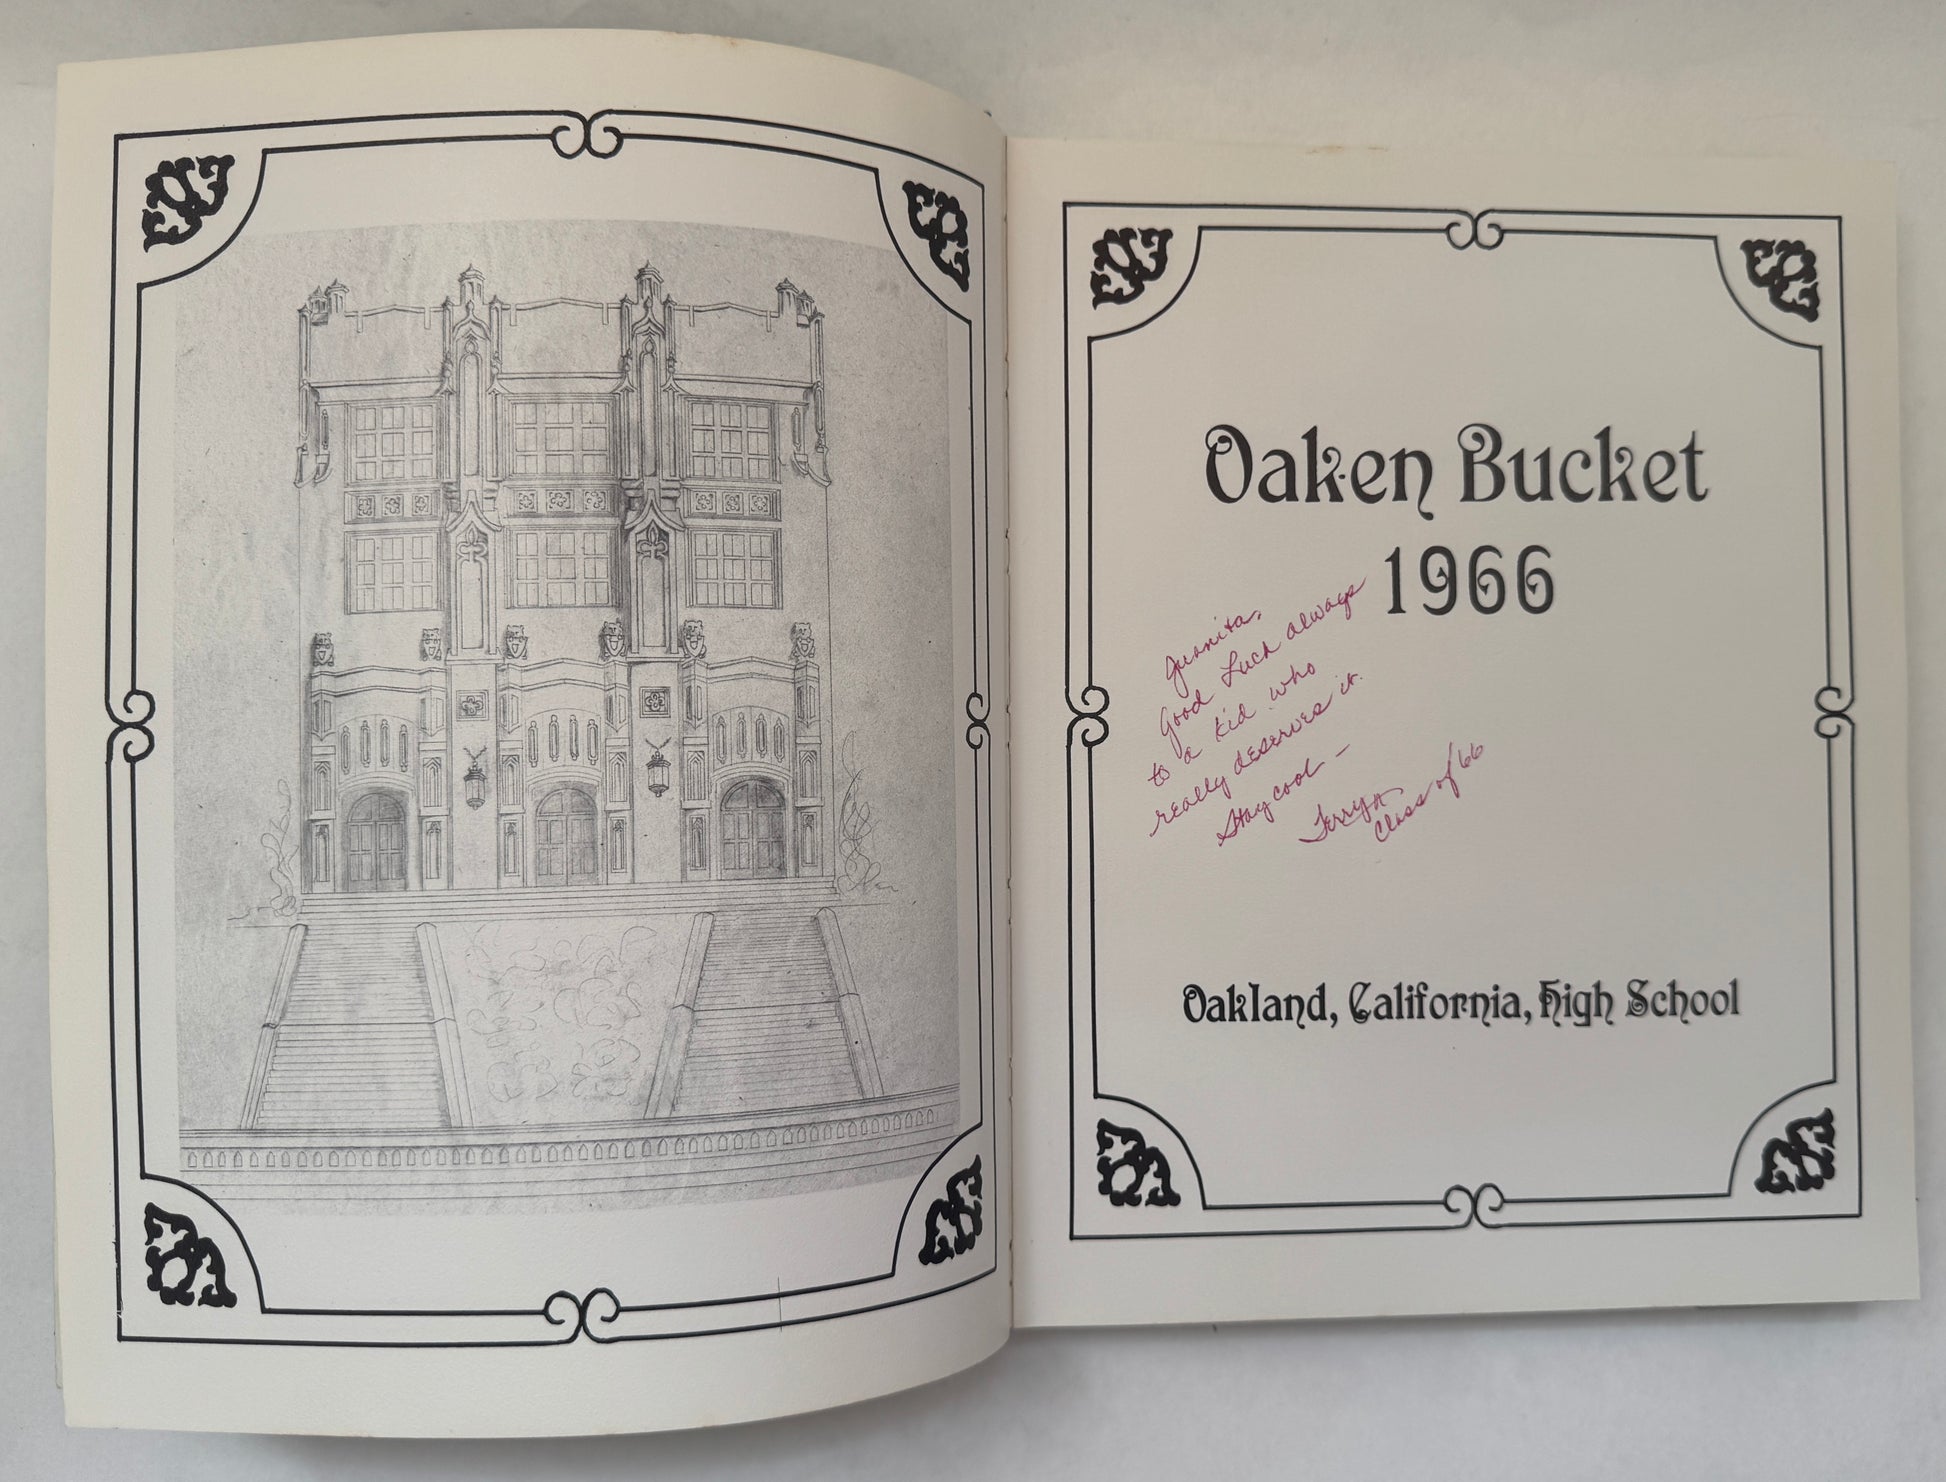 Oaken Bucket
1966
Juanita,
Good Luck always
to a kid who
really deserves it.
Stay cool —
Class of 66
Oakland, California, High School